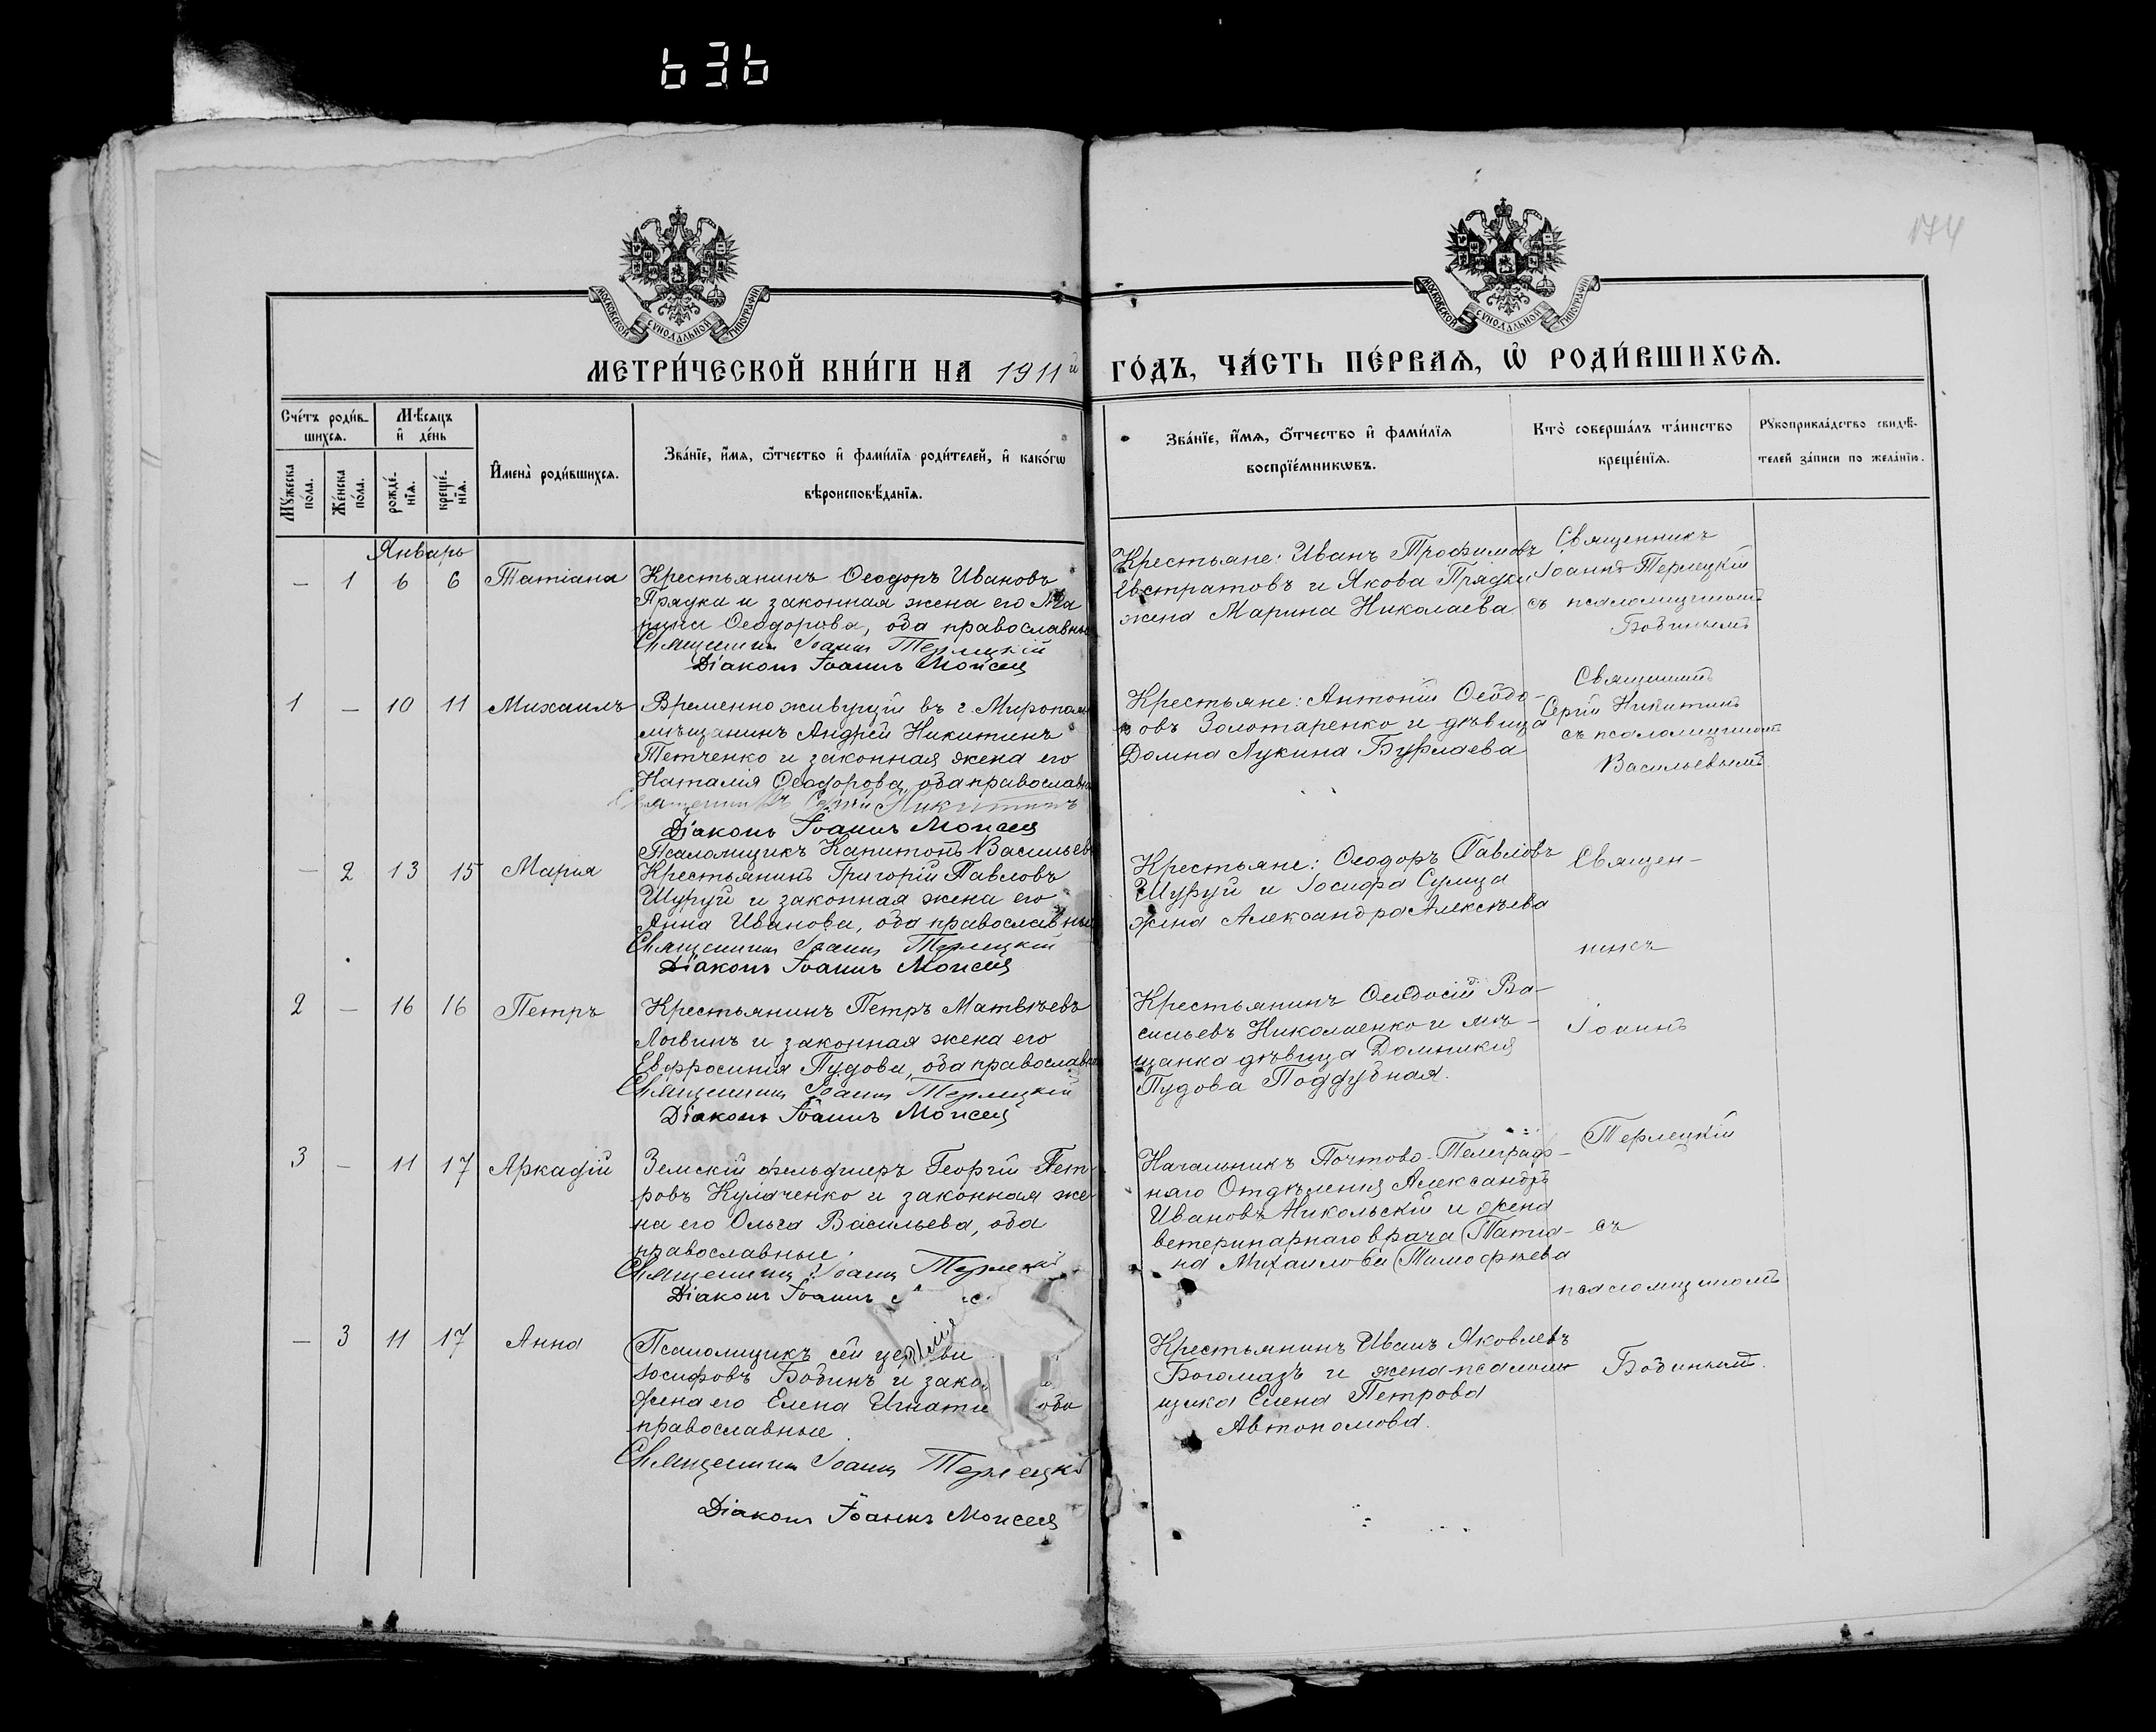 636
174
МОСКОВСКОЙ СѴНОДАЛЬНОЙ ТИПОГРАФІИ
МОСКОВСКОЙ СѴНОДАЛЬНОЙ ТИПОГРАФІИ
МЕТРИ́ЧЕСКОЙ КНИ́ГИ НА 1911й ГО́ДЪ, ЧА́СТЬ ПЕ́РВАѦ, Ѡ҆ РОДИ́ВШИХСѦ.
Сче́тъ роди́в-
шихсѧ.
Мꙋ́жеска по́ла.
Же́нска по́ла.
Мѣ́сѧцъ
и҆ де́нь
рожде́-
нїѧ.
креще́-
нїѧ.
И҆мена̀ роди́вшихсѧ.
Зва́нїе, и҆́мѧ, ѻ҆́тчество и҆ фами́лїѧ роди́телей, и҆ како́гѡ
вѣроисповѣ́данїѧ.
Зва́нїе, и҆́мѧ, ѻ҆́тчество и҆ фами́лїѧ
воспрїе́мникѡвъ.
Кто̀ соверша́лъ та́инство
креще́нїѧ.
Рꙋкоприкла́дство свидѣ́-
телей за́писи по жела́нїю.
Январь
— 1 6 6 Татіана
Крестьянинъ Ѳеодоръ Ивановъ
Прядка и законная жена его Ма
рина Ѳеодорова, оба православные
Священникъ Іоаннъ Терлецкій
Діаконъ Іоаннъ Моисеев
Крестьяне: Иванъ Трофимовъ
Евстратовъ и Якова Прядки
жена Марина Николаева
Священникъ
Іоаннъ Терлецкій
съ псаломщикомъ
Бобинымъ
1 — 10 11 Михаилъ
Временно живущій въ г. Мирополь
мѣщанинъ Андрей Никитинъ
Тетченко и законная жена его
Наталія Ѳеодорова, оба православные
Священникъ Сергій Никитинъ
Діаконъ Іоаннъ Моисеев
Псаломщикъ Капитонъ Васильев
Крестьяне: Антоній Ѳеодо-
ровъ Золотаренко и дѣвица
Домна Лукина Бурлаева
Священникъ
Сергій Никитинъ
съ псаломщикомъ
Васильевымъ
— 2 13 15 Марія
Крестьянинъ Григорій Павловъ
Шуруй и законная жена его
Анна Иванова, оба православные
Священникъ Іоаннъ Терлецкій
Діаконъ Іоаннъ Моисеев
Крестьяне: Ѳеодоръ Павловъ
Шуруй и Іосифа Сулица
жена Александра Алексѣева
Священ-
никъ
2 — 16 16 Петръ
Крестьянинъ Петръ Матвѣевъ
Логвинъ и законная жена его
Евфросинія Пудова, оба православные
Священникъ Іоаннъ Терлецкій
Діаконъ Іоаннъ Моисеев
Крестьянинъ Ѳеодосій Ва-
сильевъ Николаенко и мѣ-
щанка дѣвица Домникія
Пудова Поддубная.
Іоаннъ
3 — 11 17 Аркадій
Земскій фельдшеръ Георгій Пет-
ровъ Кулаченко и законная же
на его Ольга Васильева, оба
православные.
Священникъ Іоаннъ Терлецкій
Діаконъ Іоаннъ
Начальникъ Почтово-Телеграф-
наго Отдѣленія Александръ
Ивановъ Никольскій и жена
ветеринарнаго врача Татіа-
на Михаилова Тимофѣева
Терлецкій
съ
псаломщикомъ
— 3 11 17 Анна
Псаломщикъ сей церкви
Іосифовъ Бобинъ и зако
жена его Елена Игнатіе оба
православные.
Священникъ Іоаннъ Терлецкій
Діаконъ Іоаннъ Моисеев
Крестьянинъ Иванъ Яковлевъ
Богомазъ и жена псалом
щика Елена Петрова
Автономова.
Бобинымъ.